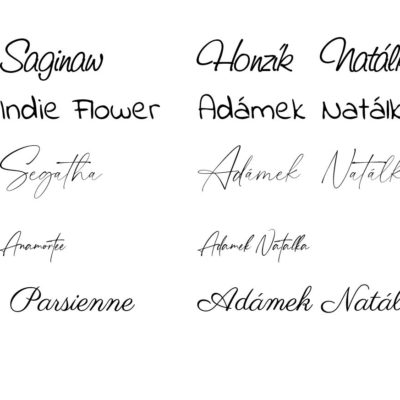 Saginaw Honzík Natál
Indie Flower Adámek Natálk
Segatha Adámek Natálk
Anamortee Adamek Natalka
Parsienne Adámek Natál